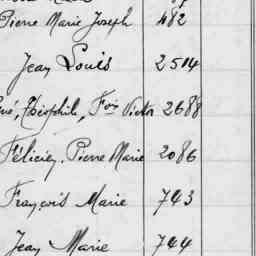 Pierre Marie Joseph 482
Jean Louis 2514
Théophile, Fois Victor 2688
Félicien, Pierre Marie 2086
François Marie 743
Jean Marie 744